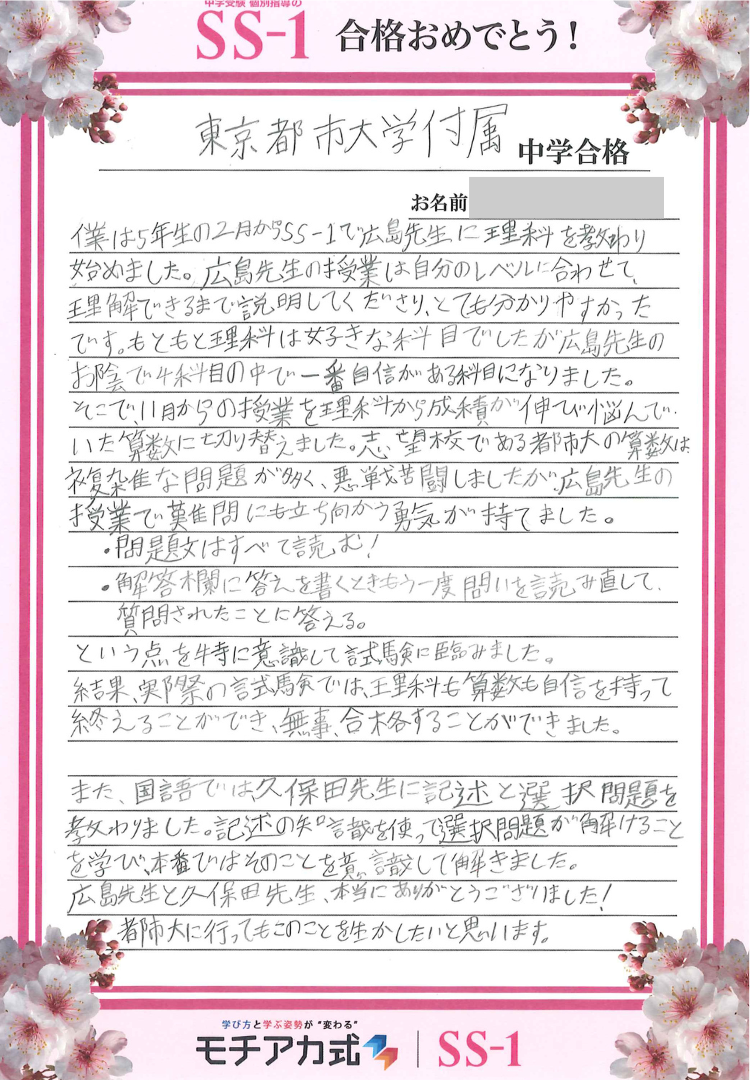 中学受験 個別指導の
SS-1 合格おめでとう！
東京都市大学付属 中学合格
お名前
僕は5年生の2月からSS-1で広島先生に理科を教わり
始めました。広島先生の授業は自分のレベルに合わせて、
理解できるまで説明してくださり、とても分かりやすかった
です。もともと理科は好きな科目でしたが広島先生の
お陰で4科目の中で一番自信がある科目になりました。
そこで、11月からの授業を理科から成績が伸び悩んで
いた算数に切り替えました。志望校である都市大の算数は
複雑な問題が多く、悪戦苦闘しましたが、広島先生の
授業で難問にも立ち向かう勇気が持てました。
・問題文はすべて読む！
・解答欄に答えを書くときもう一度問いを読み直して、
質問されたことに答える。
という点を特に意識して試験に臨みました。
結果、実際の試験では、理科も算数も自信を持って
終えることができ、無事、合格することができました。
また、国語では、久保田先生に記述と選択問題を
教わりました。記述の知識を使って選択問題が解けること
を学び、本番ではそのことを意識して解きました。
広島先生と久保田先生、本当にありがとうございました！
都市大に行ってもこのことを生かしたいと思います。
学び方と学ぶ姿勢が "変わる"
モチアカ式 | SS-1